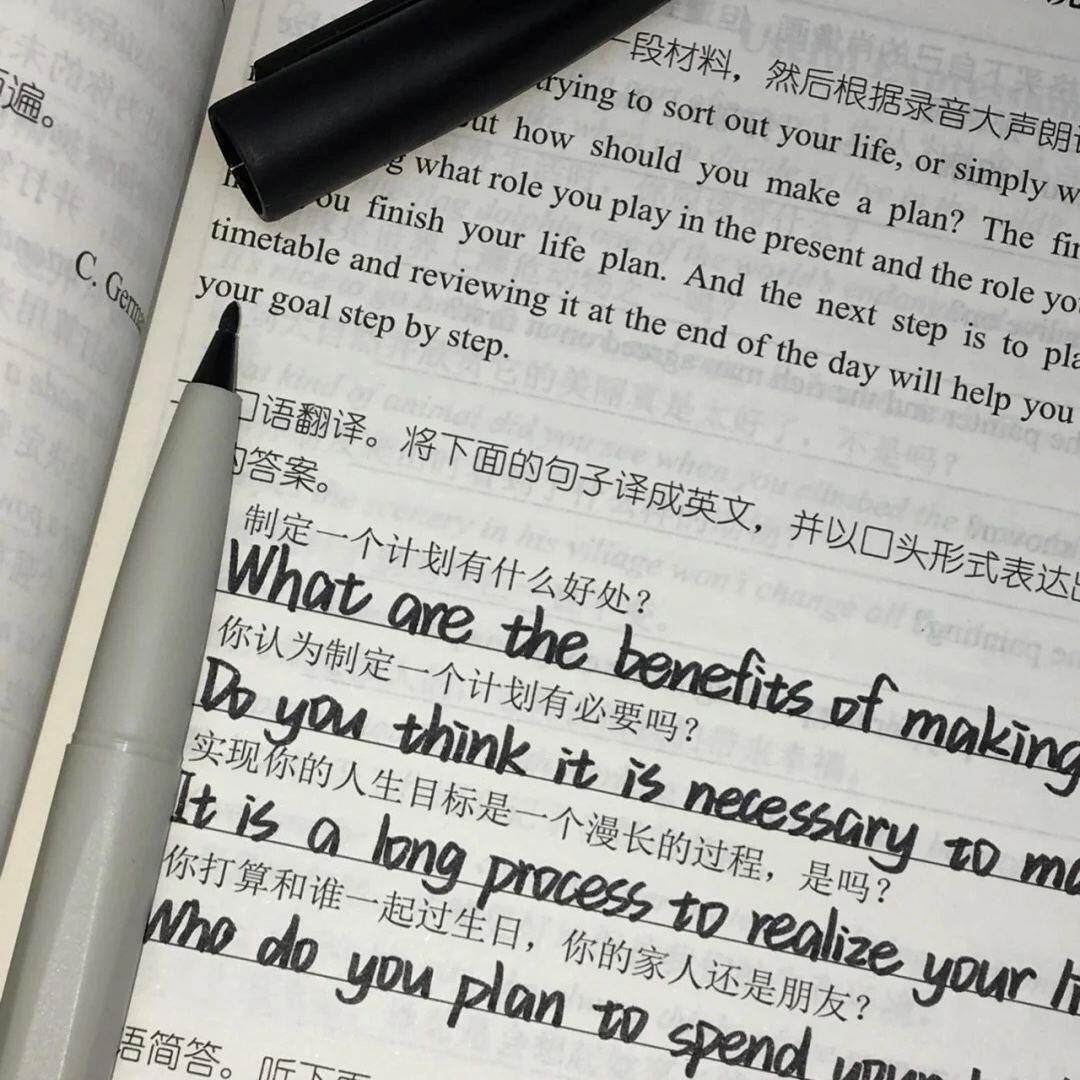 遍。
C. Germ
一段材料，然后根据录音大声朗
trying to sort out your life, or simply
but how should you make a plan? The
what role you play in the present and the role
you finish your life plan. And the next step is to
timetable and reviewing it at the end of the day will help you
your goal step by step.
口语翻译。将下面的句子译成英文，并以口头形式表达
答案。
制定一个计划有什么好处？
What are the benefits of making
你认为制定一个计划有必要吗？
Do you think it is necessary to
实现你的人生目标是一个漫长的过程，是吗？
It is a long process to realize your
你打算和谁一起过生日，你的家人还是朋友？
Who do you plan to spend your
语简答。听下面